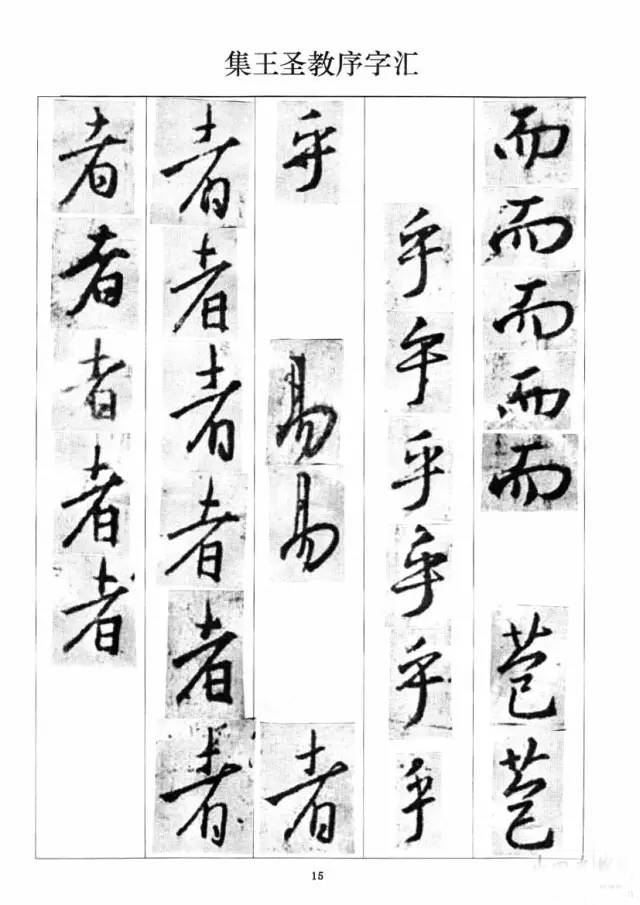 集王圣教序字汇
而而而而而苞苞
乎乎乎乎乎乎
乎易易者
者者者者者者
者者者者者
15